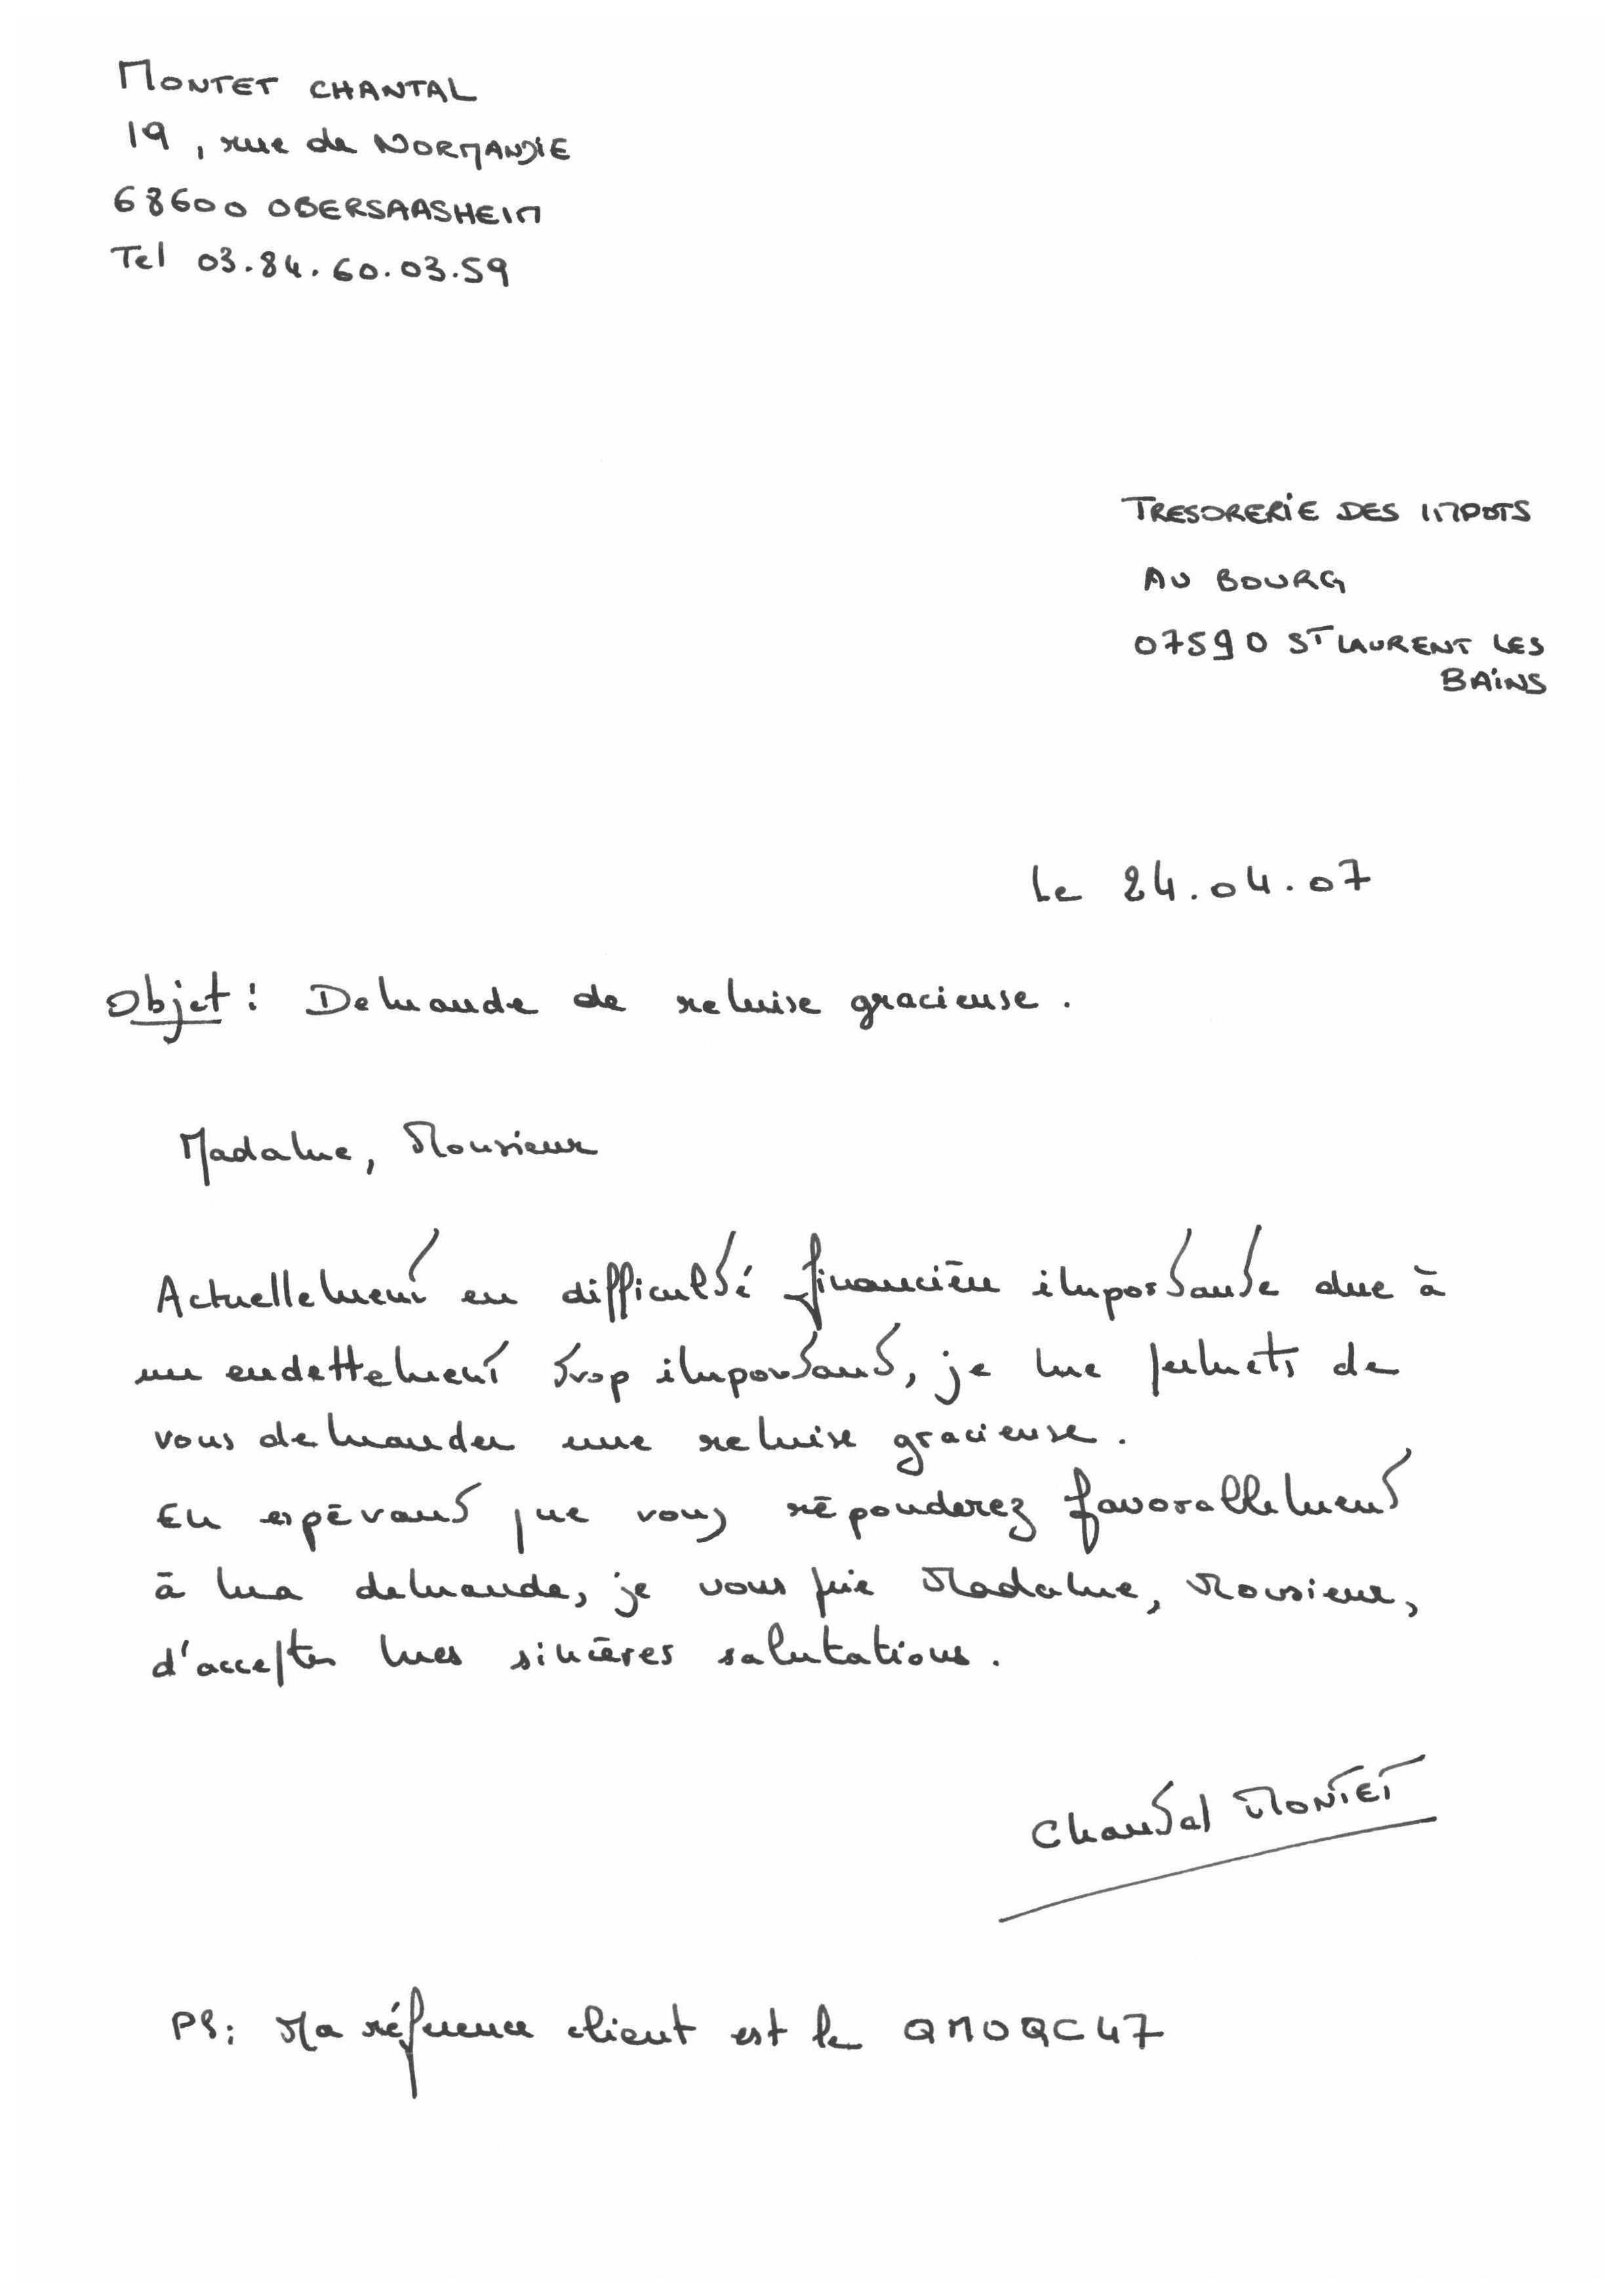 MONTET CHANTAL
19, rue de NORMANDIE
68600 OBERSAASHEIM
Tel 03.84.60.03.59
TRESORERIE DES IMPOTS
AU BOURG
07590 ST LAURENT LES
BAINS
Le 24.04.07
Objet : Demande de remise gracieuse.
Madame, Monsieur
Actuellement en difficulté financière importante due à
un endettement trop important, je me permets de
vous demander une remise gracieuse.
En espérant que vous réponderez favorablement
à ma demande, je vous prie Madame, Monsieur,
d'accepter mes sincères salutations.
Chantal MONTET
PS: Ma référence client est le QMOQC47